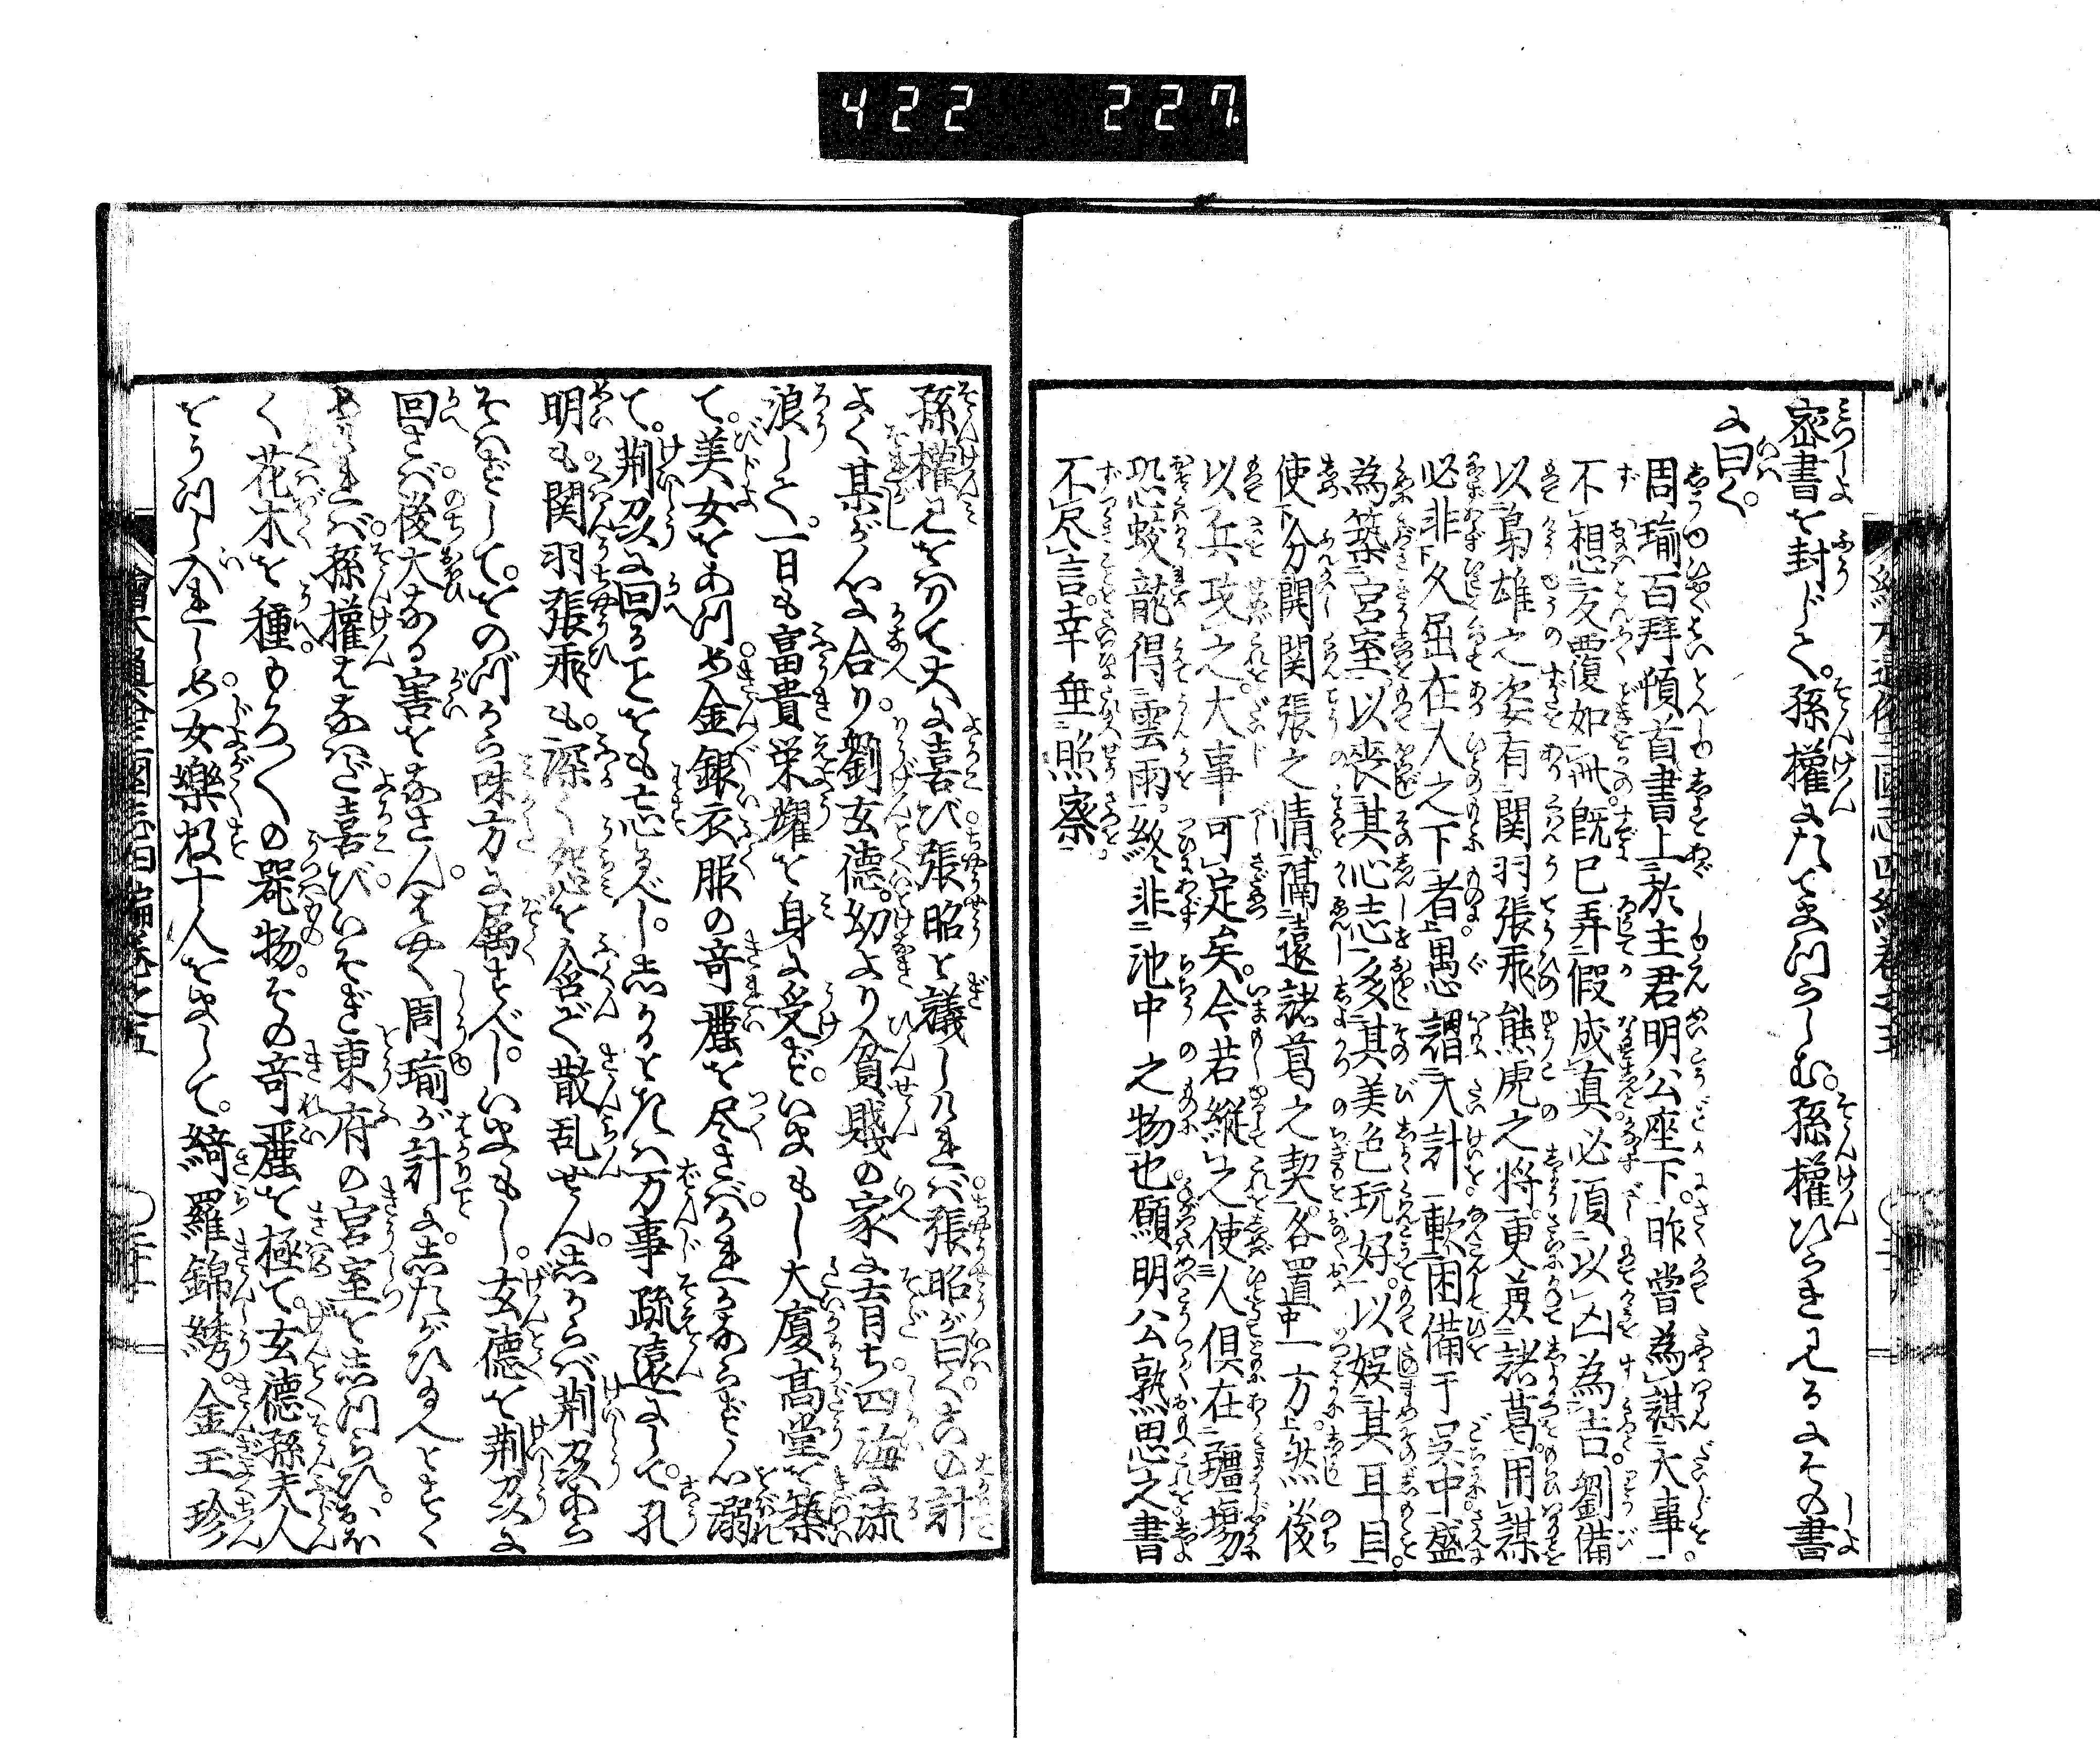 422 227
密書を封じて。孫權にたてまつらしむ。孫權ひらき見るにその書
に曰く。
周瑜百拜頓首書上於主君明公座下。昨嘗為謀大事。
不想反覆如此。既已弄假成真。必須以凶為吉。劉備
以梟雄之姿。有関羽張飛熊虎之将。更兼諸葛。用謀
必非久屈在人之下者。愚謂大計。軟困備于吳中。盛
為築宮室。以喪其心志。多其美色玩好。以娛其耳目。
使分開関張之情。隔遠諸葛之契。各置一方。然後
以兵攻之。大事可定矣。今若縱之使人俱在疆場。
恐蛟龍得雲雨。終非池中之物也。願明公熟思之。書
不尽言。幸垂照察。
孫權見をはりて大に喜び。張昭と議しければ。張昭が曰く。この計
よく某が心に合り。劉玄德。幼より貧賤の家に育ち。四海に流
浪して。一日も富貴栄耀を身に受ず。いまもし大廈高堂を築
て。美女をあつめ。金銀衣服の奇麗を尽さば。かれかならず心溺
て。荆刕に回ることをも忘るべし。しかるときハ万事疎遠にして。孔
明も関羽張飛も。深く怨を含で散乱せん。しからば荆刕おのづ
回さば。後大なる害をなさん。はやく周瑜が計に。したがひ給へとすゝ
めければ。孫權はなはだ喜び。いそぎ東府の宮室をしつらひ。おほ
く花木を種。もろ〱の器物。その奇麗を極て。玄德孫夫人
をうつし入れしめ。女樂数十人をまして。綺羅錦綉。金玉珍